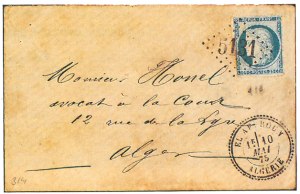 REPUB. FRANC.
51
Monsieur Honel
avocat à la Cour
12 rue de la Lyre
Alger
EL
10
MAI
75
ALGERIE